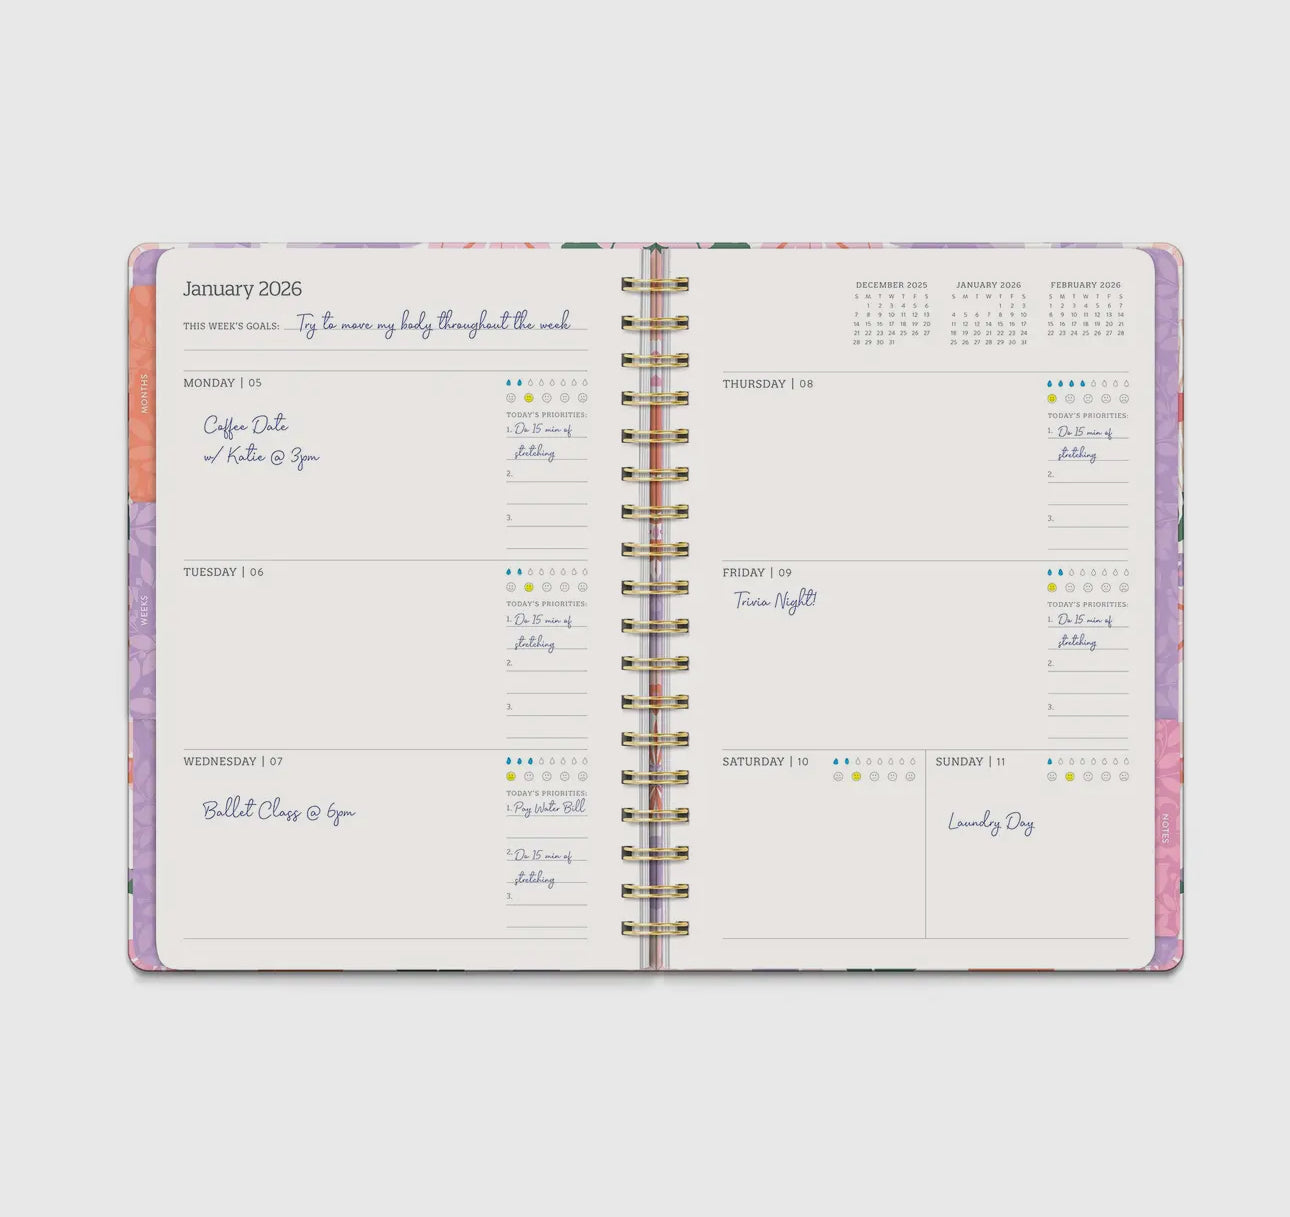 MONTHS
WEEKS
January 2026
THIS WEEK'S GOALS: Try to move my body throughout the week
MONDAY | 05
Coffee Date
w/ Katie @ 3pm
TODAY'S PRIORITIES:
1. Do 15 min of
stretching
2.
3.
TUESDAY | 06
TODAY'S PRIORITIES:
1. Do 15 min of
stretching
2.
3.
WEDNESDAY | 07
Ballet Class @ 6pm
TODAY'S PRIORITIES:
1. Pay Water Bill
2. Do 15 min of
stretching
3.
DECEMBER 2025
S M T W T F S
1 2 3 4 5 6
7 8 9 10 11 12 13
14 15 16 17 18 19 20
21 22 23 24 25 26 27
28 29 30 31
JANUARY 2026
S M T W T F S
1 2 3
4 5 6 7 8 9 10
11 12 13 14 15 16 17
18 19 20 21 22 23 24
25 26 27 28 29 30 31
FEBRUARY 2026
S M T W T F S
1 2 3 4 5 6 7
8 9 10 11 12 13 14
15 16 17 18 19 20 21
22 23 24 25 26 27 28
THURSDAY | 08
TODAY'S PRIORITIES:
1. Do 15 min of
stretching
2.
3.
FRIDAY | 09
Trivia Night!
TODAY'S PRIORITIES:
1. Do 15 min of
stretching
2.
3.
SATURDAY | 10
SUNDAY | 11
Laundry Day
NOTES